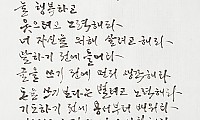 늘 행복하고
웃으려고 노력해라
너 자신을 위해 살려고 해라
말하기 전에 들어라
글을 쓰기 전에 먼저 생각해라
돈을 쓰기 보다는 벌려고 노력해라
기도하기 전에 용서부터 배워라